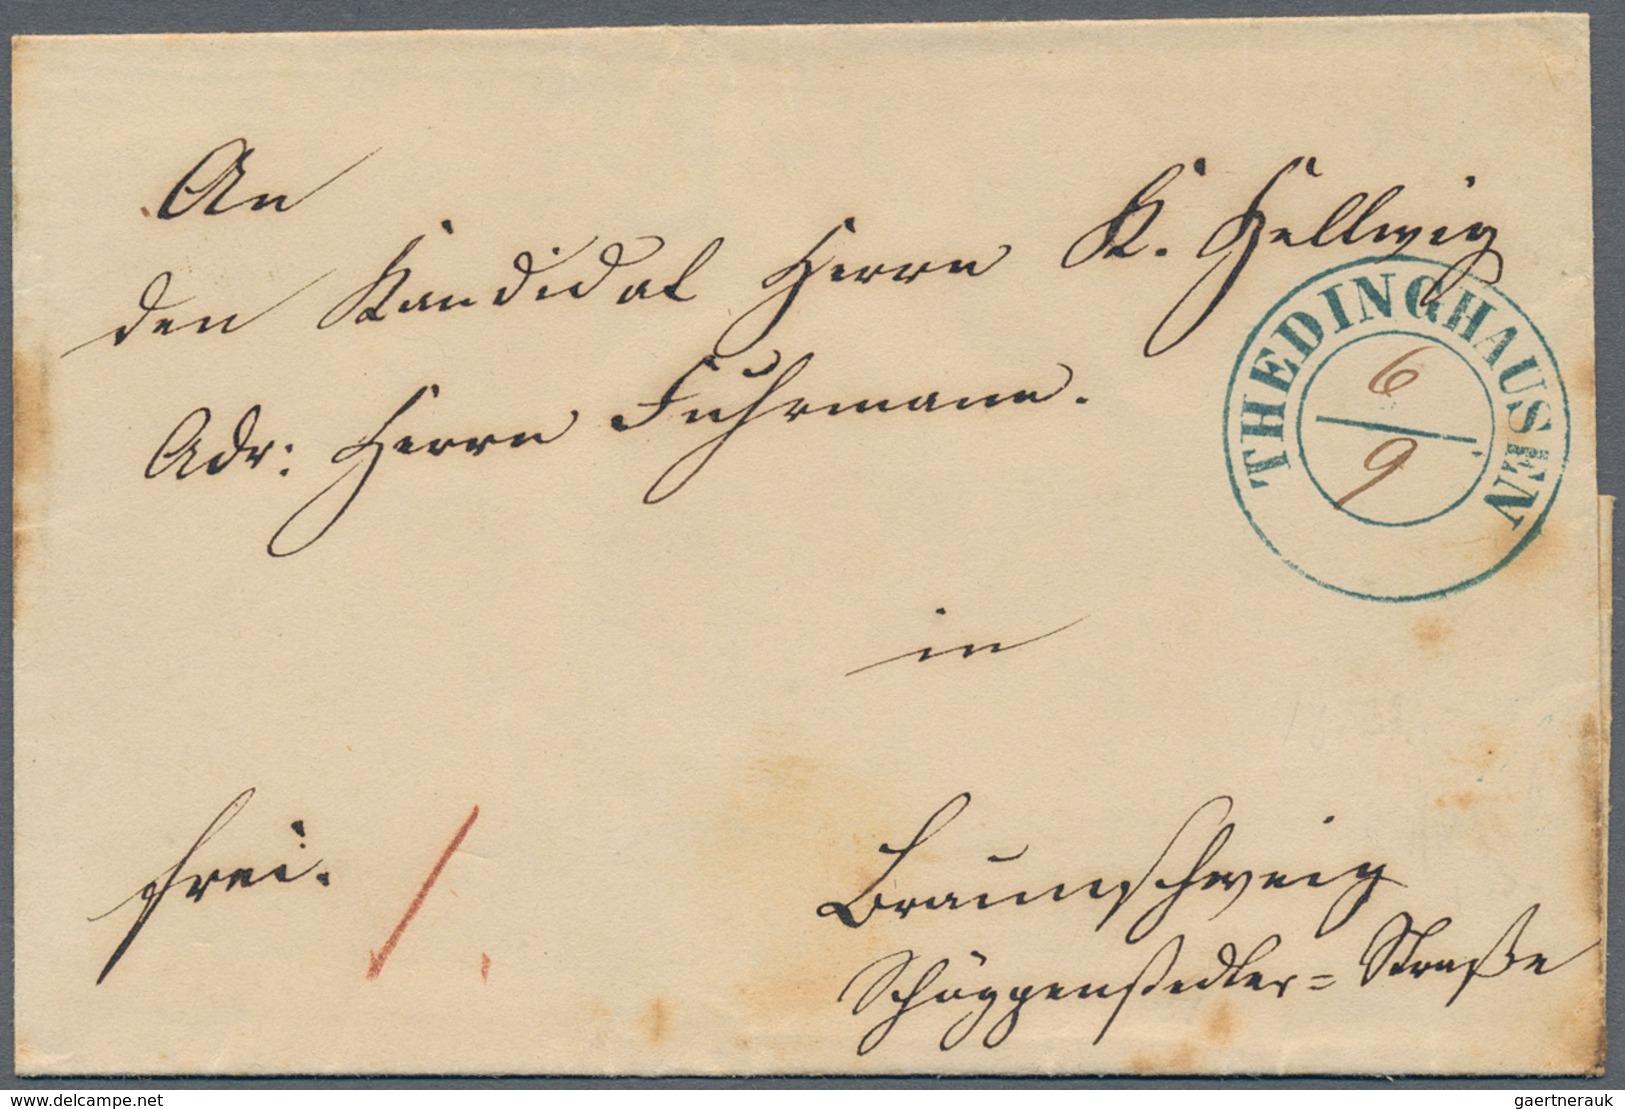 An
den Kandidat Herrn K. Hellwig
Adr: Herrn Fuhrmann.
THEDINGHAUSEN
6
9
in
frei. 1.
Braunschweig
Schöppenstedter=Straße
delcampe.net
gaertnerauk